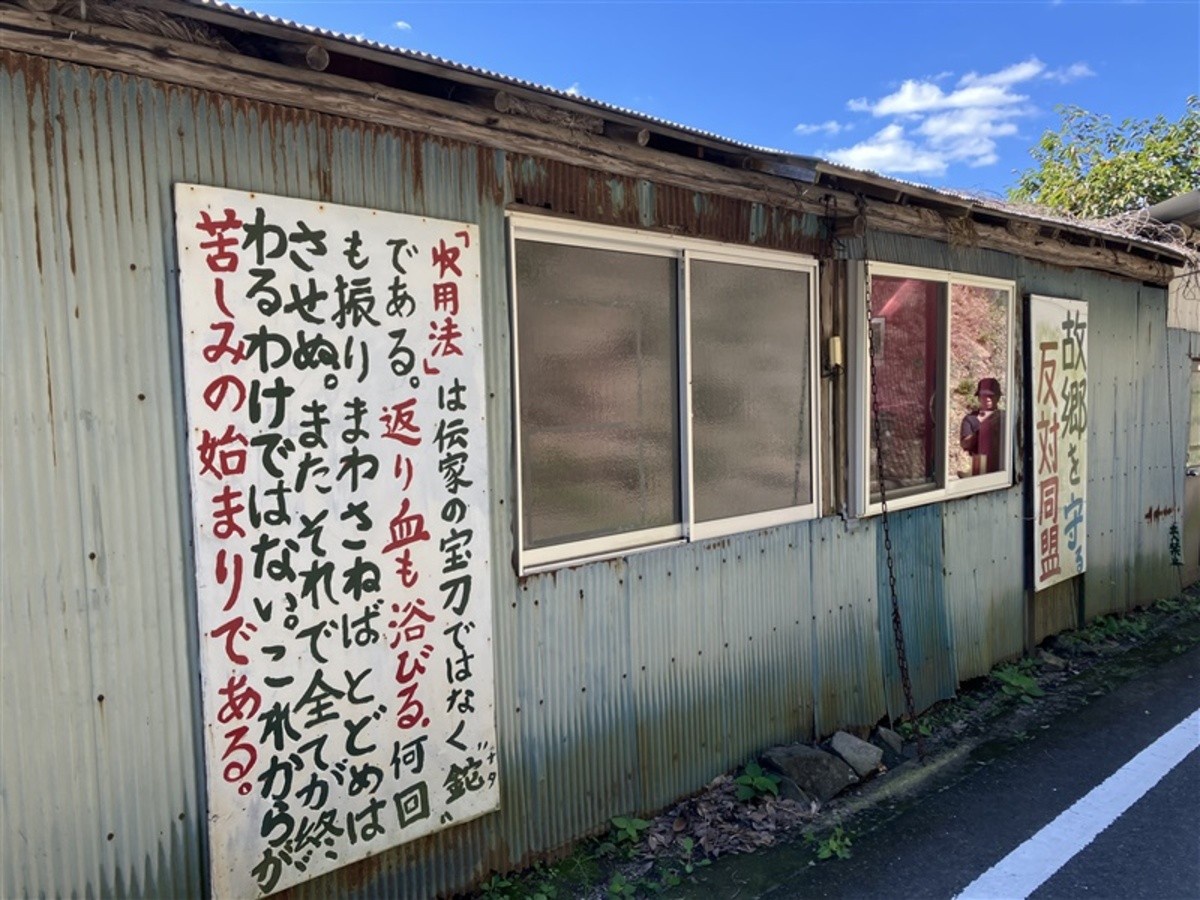 「収用法」は伝家の宝刀ではなく"鉈"
ナタ
である。返り血も浴びる。何回
も振りまわさねばとどめは
させぬ。またそれで全てが終
わるわけではない。これからが
苦しみの始まりである。
故郷を守る
反対同盟